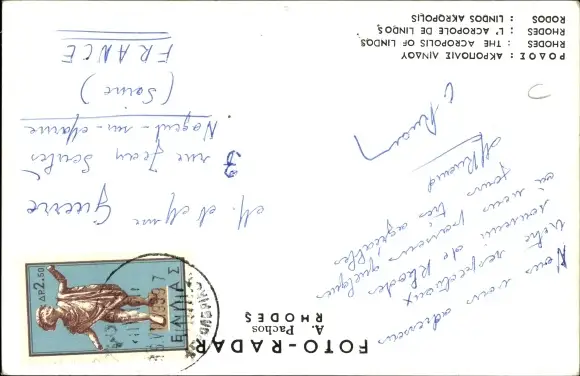 ΡΟΔΟΣ : ΑΚΡΟΠΟΛΙΣ ΛΙΝΔΟΥ
RHODES : THE ACROPOLIS OF LINDOS
RHODES : L' ACROPOLE DE LINDOS
RODOS : LINDOS AKROPOLIS
Nous vous adressons
notre respectueux
souvenir de Rhodes
où nous passons quelques
jours très agréables
FOTO-RADAR
A. Pachos
RHODES
M. et Mme Guerre
7 rue Jean Soulès
Nogent-sur-Marne
(Seine)
FRANCE
ΔΡ 2.50